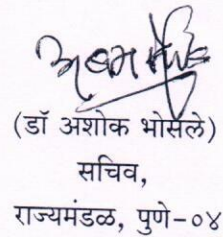 (डॉ अशोक भोसले)
सचिव,
राज्यमंडळ, पुणे-०४